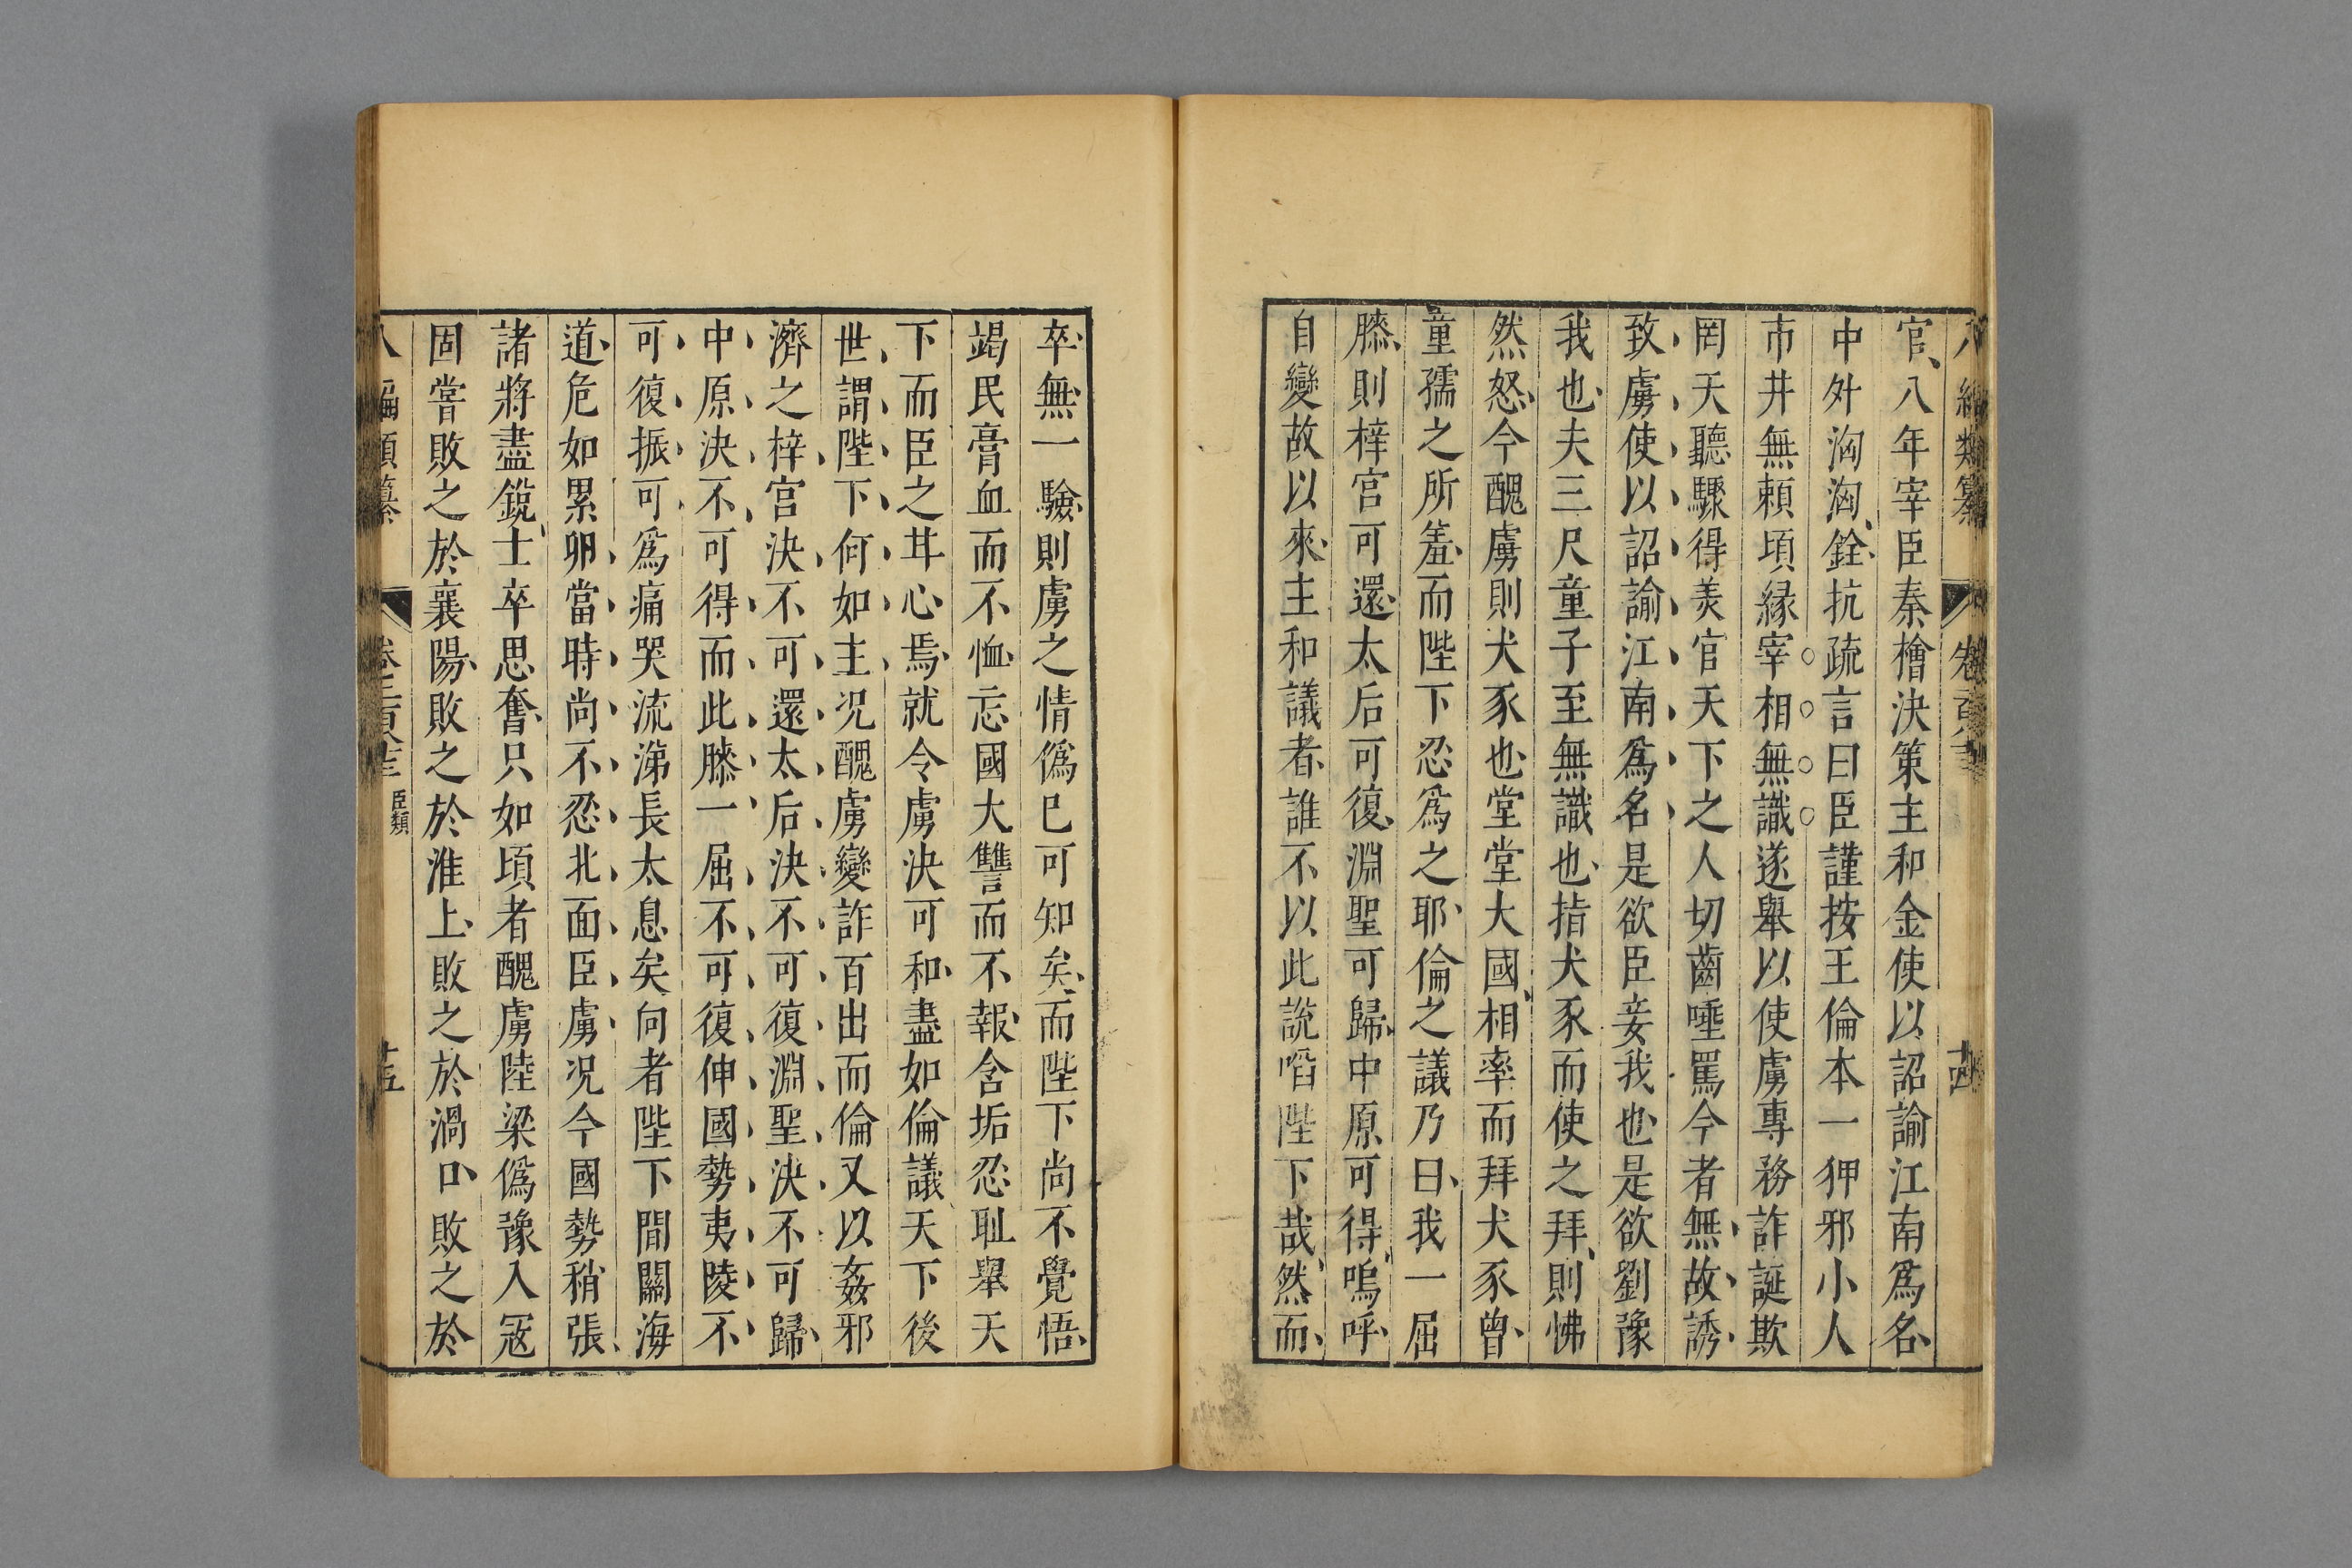 官八年宰臣秦檜決策主和金使以詔諭江南爲名
中外洶洶銓抗疏言曰臣謹按王倫本一狎邪小人
市井無賴頃縁宰相無識遂舉以使虜專務詐誕欺
罔天聽驟得美官天下之人切齒唾罵今者無故誘
致虜使以詔諭江南爲名是欲臣妾我也是欲劉豫
我也夫三尺童子至無識也指犬豕而使之拜則怫
然怒今醜虜則犬豕也堂堂大國相率而拜犬豕曾
童孺之所羞而陛下忍爲之耶倫之議乃曰我一屈
膝則梓宮可還太后可復淵聖可歸中原可得嗚呼
自變故以來主和議者誰不以此說啗陛下哉然而
卒無一驗則虜之情僞已可知矣而陛下尚不覺悟
竭民膏血而不恤忘國大讐而不報含垢忍耻舉天
下而臣之甘心焉就令虜決可和盡如倫議天下後
世謂陛下何如主况醜虜變詐百出而倫又以姦邪
濟之梓宮決不可還太后決不可復淵聖決不可歸
中原決不可得而此膝一屈不可復伸國勢夷陵不
可復振可爲痛哭流涕長太息矣向者陛下間關海
道危如累卵當時尚不忍北面臣虜况今國勢稍張
諸將盡銳士卒思奮只如頃者醜虜陸梁僞豫入宼
固甞敗之於襄陽敗之於淮上敗之於渦口敗之於
八編類纂
臣類
十五